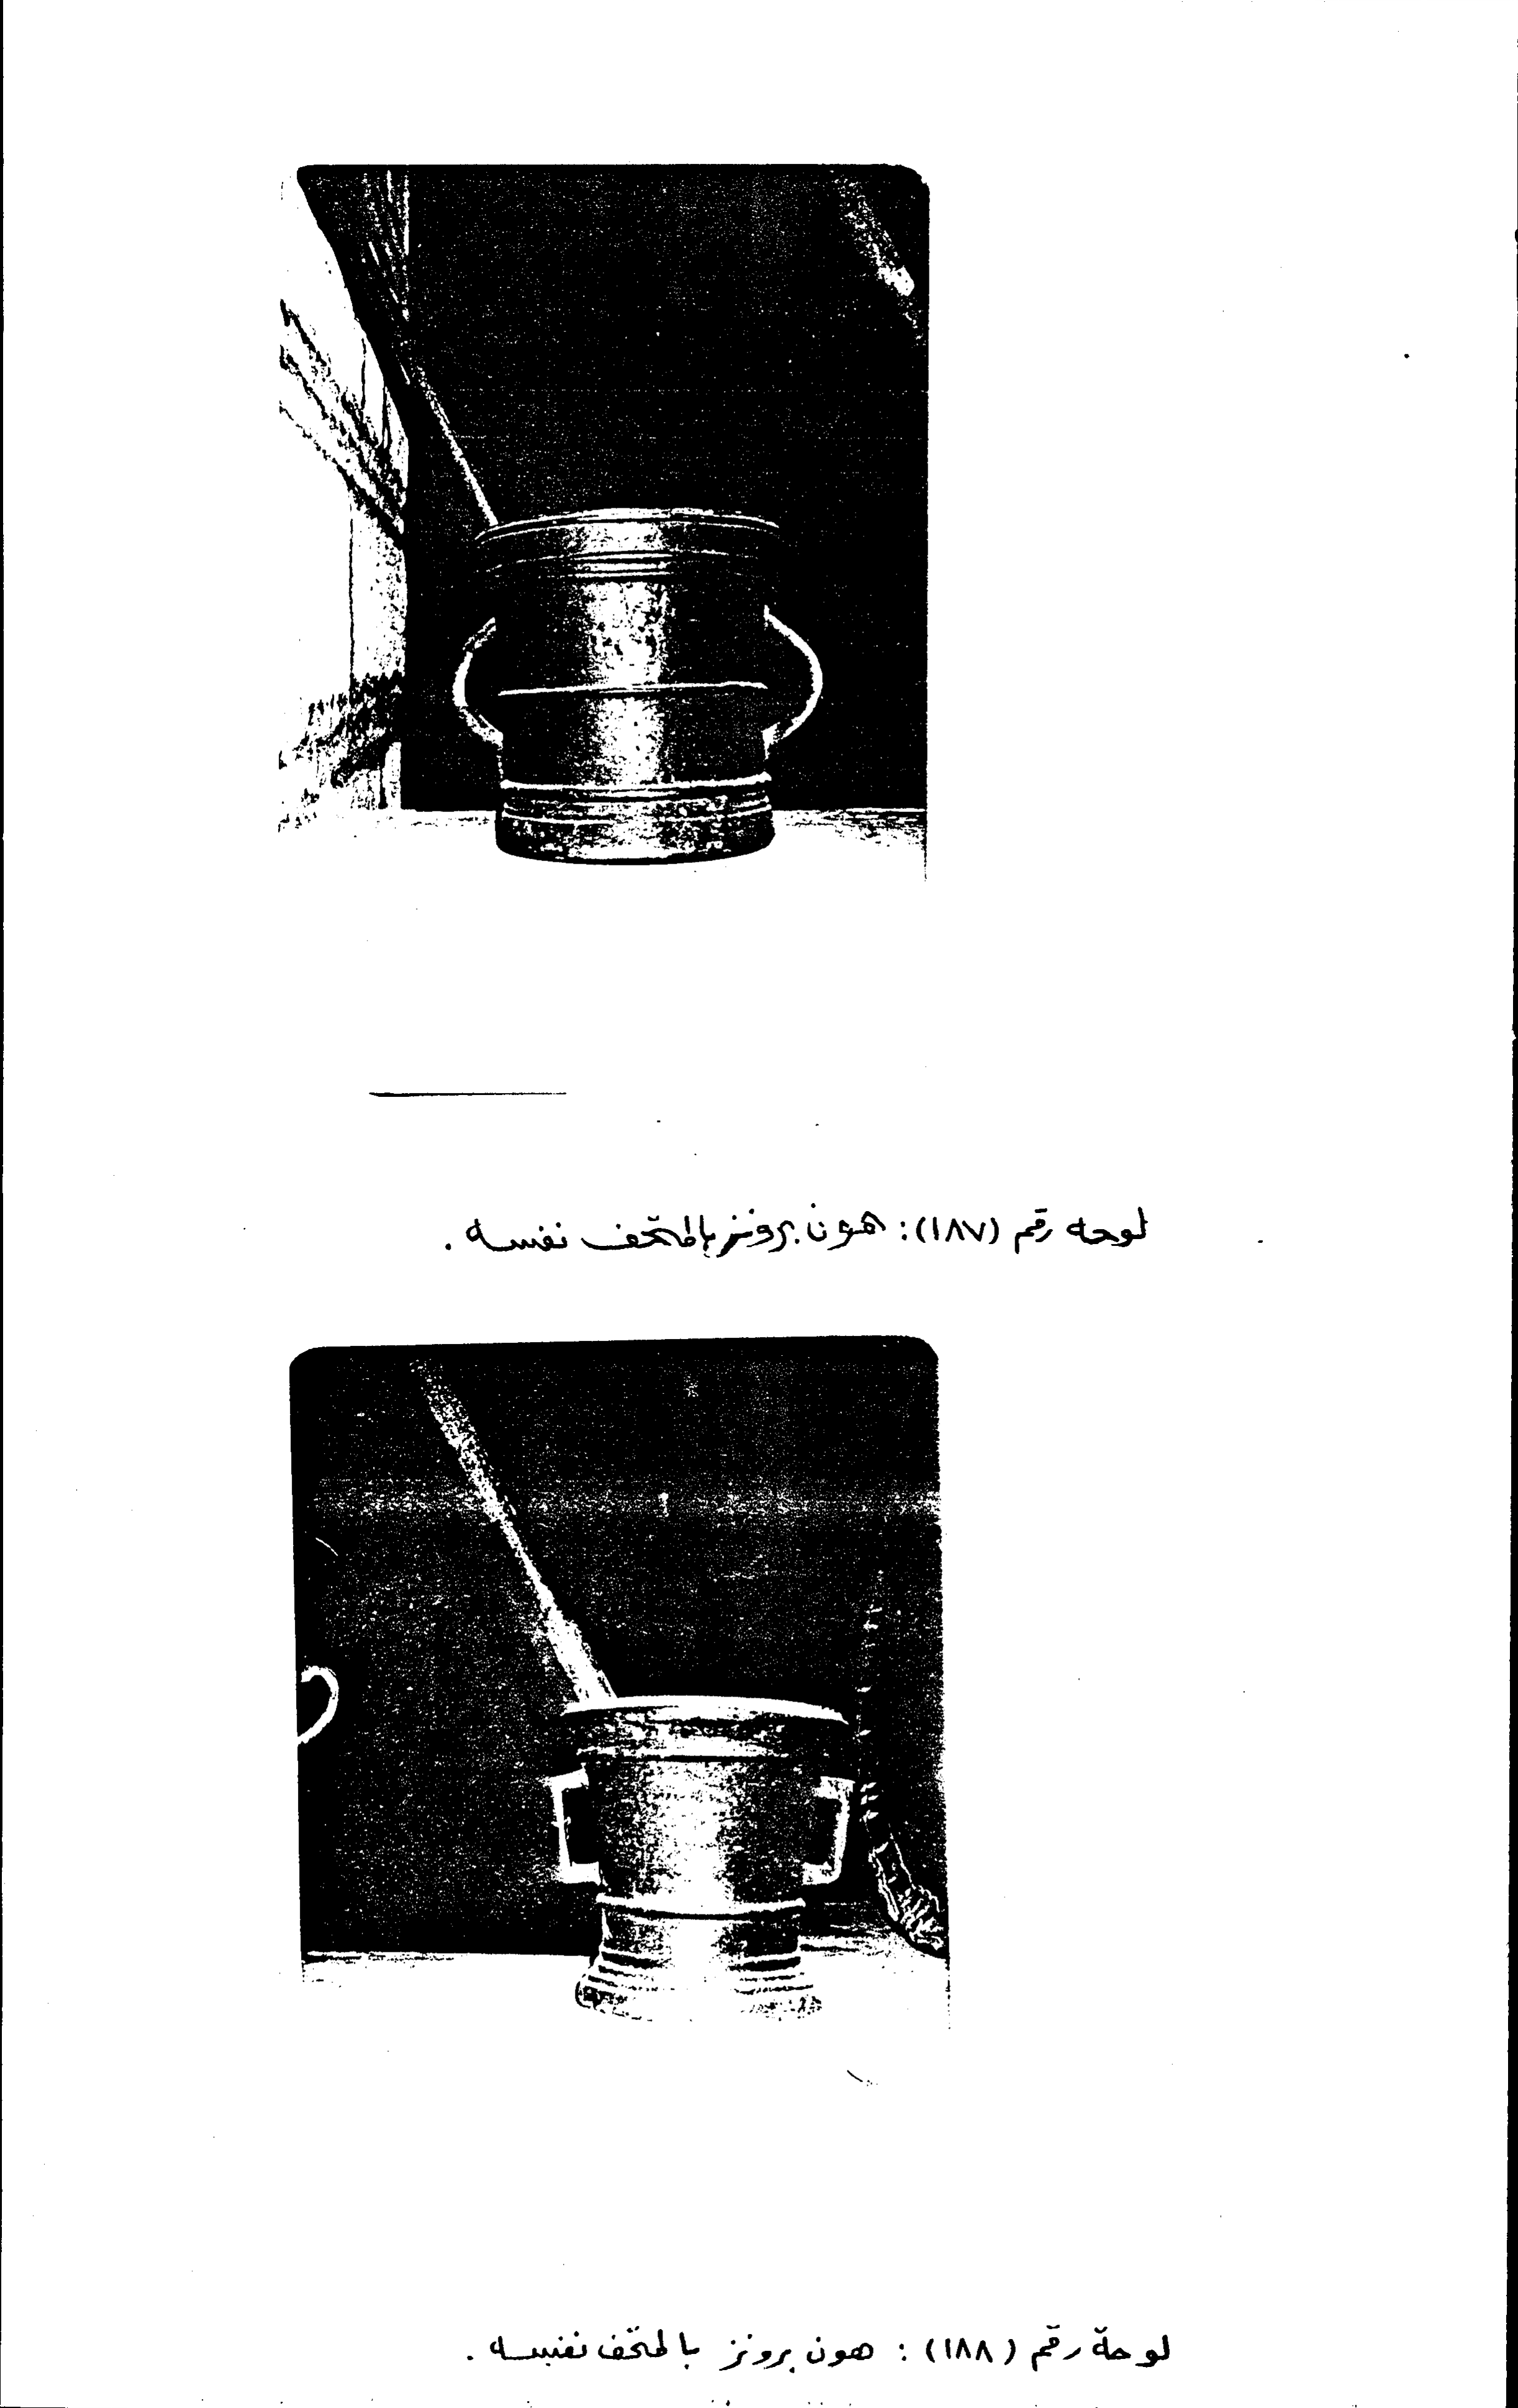 لوحه رقم (١٨٧): هون برونز بالمتحف نفسه .
لوحة رقم (١٨٨) : هون برونز بالمتحف نفسه .